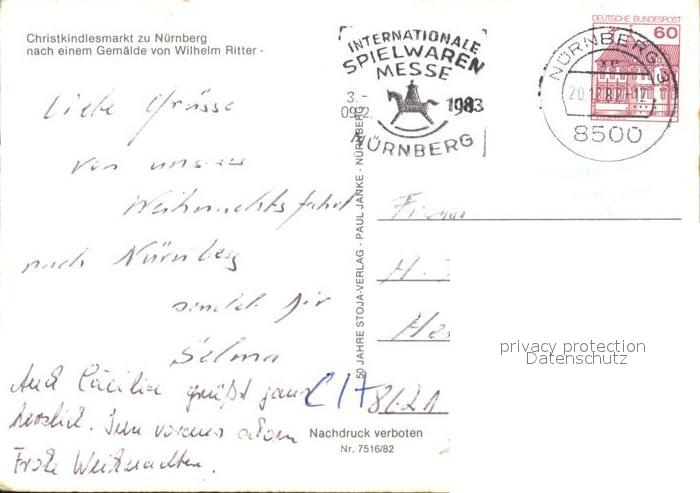 Christkindlesmarkt zu Nürnberg
nach einem Gemälde von Wilhelm Ritter -
Liebe Grüsse
von unserer
Weihnachtsfahrt
nach Nürnberg
sendet Dir
Selma
Auch Cäcilia grüßt ganz
herzlich. Ihnen voraus schon
Frohe Weihnachten.
INTERNATIONALE
SPIELWAREN
MESSE
3.-
09.2.
1983
NÜRNBERG
DEUTSCHE BUNDESPOST
60
NÜRNBERG 3
8500
50 JAHRE STOJA-VERLAG - PAUL JANKE - NÜRNBERG
Firma
H.
CH
8621
privacy protection
Datenschutz
Nachdruck verboten
Nr. 7516/82